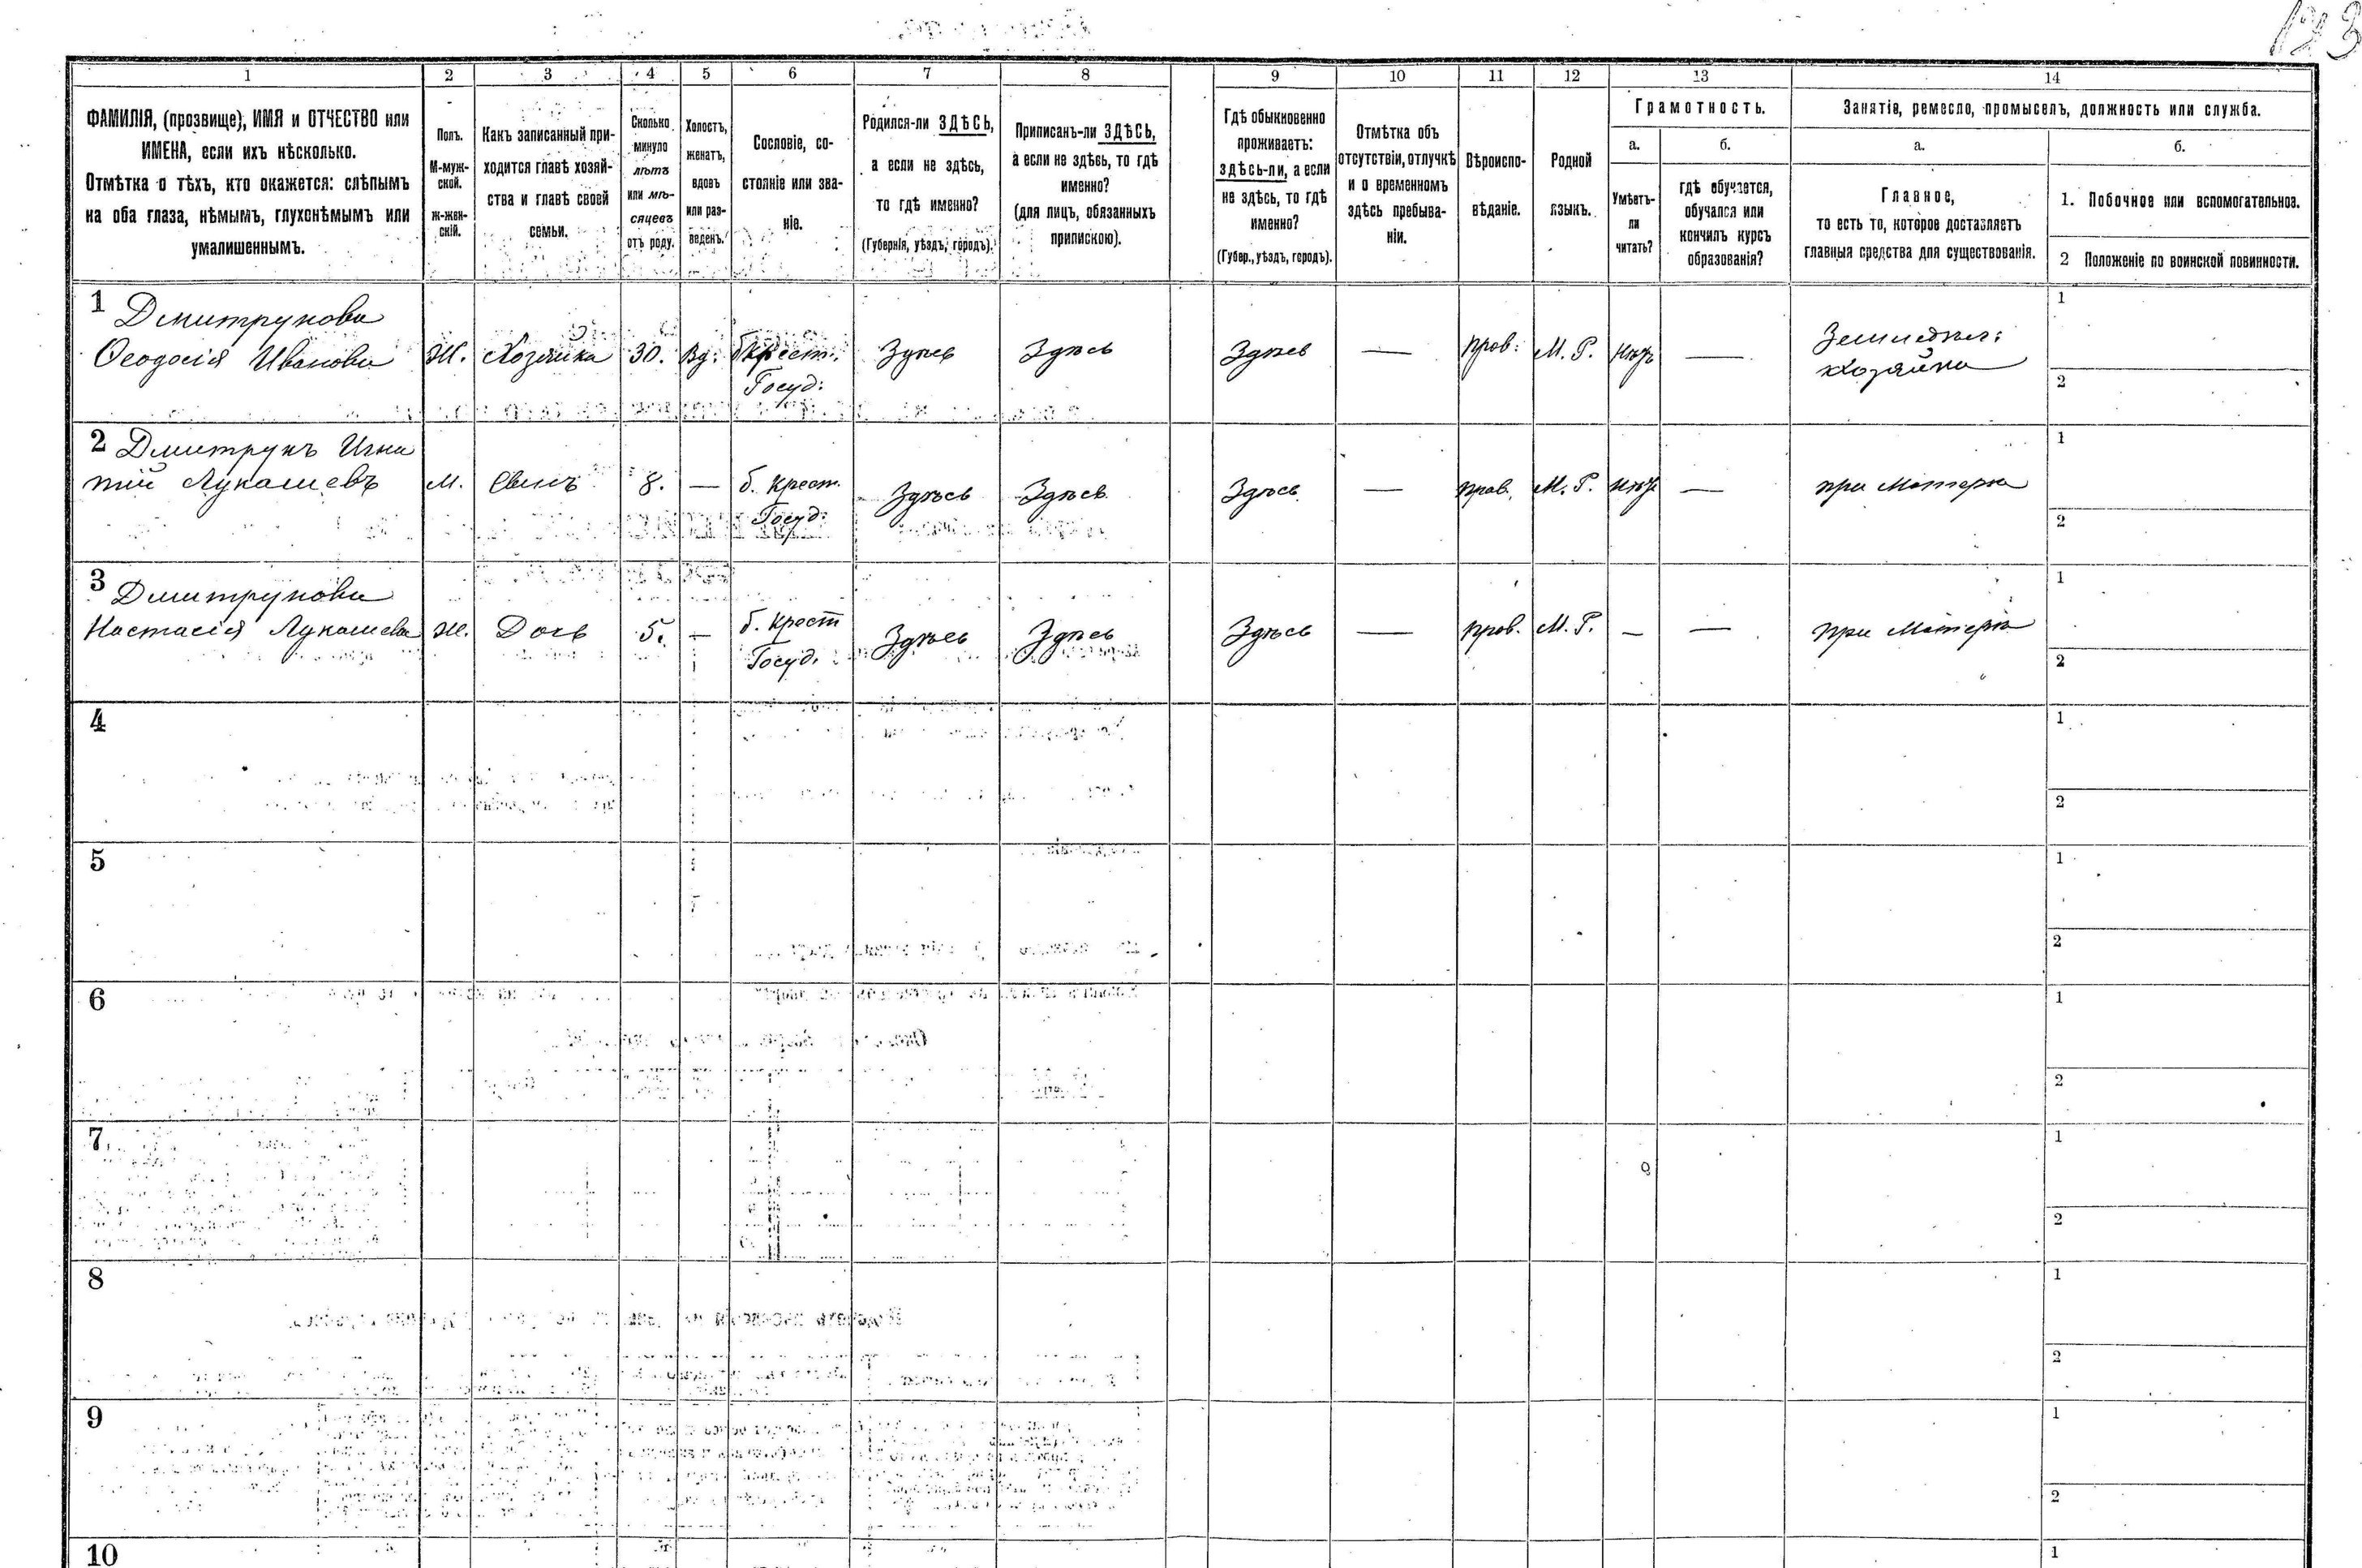 123
1 2 3 4 5 6 7 8 9 10 11 12 13 14
ФАМИЛІЯ, (прозвище), ИМЯ и ОТЧЕСТВО или
ИМЕНА, если ихъ нѣсколько.
Отмѣтка о тѣхъ, кто окажется: слѣпымъ
на оба глаза, нѣмымъ, глухонѣмымъ или
умалишеннымъ.
Полъ.
М-муж-
ской.
Ж-жен-
скій.
Какъ записанный при-
ходится главѣ хозяй-
ства и главѣ своей
семьи.
Сколько
минуло
лѣтъ
или мѣ-
сяцевъ
отъ роду.
Холостъ,
женатъ,
вдовъ
или раз-
веденъ.
Сословіе, со-
стояніе или зва-
ніе.
Родился-ли ЗДѢСЬ,
а если не здѣсь,
то гдѣ именно?
(Губернія, уѣздъ, городъ).
Приписанъ-ли ЗДѢСЬ,
а если не здѣсь, то гдѣ
именно?
(для лицъ, обязанныхъ
припискою).
Гдѣ обыкновенно
проживаетъ:
здѣсь-ли, а если
не здѣсь, то гдѣ
именно?
(Губер., уѣздъ, городъ).
Отмѣтка объ
отсутствіи, отлучкѣ
и о временномъ
здѣсь пребыва-
ніи.
Вѣроиспо-
вѣданіе.
Родной
языкъ.
Грамотность.
а.
Умѣетъ-
ли
читать?
б.
гдѣ обучается,
обучался или
кончилъ курсъ
образованія?
Занятія, ремесло, промыселъ, должность или служба.
а.
Главное,
то есть то, которое доставляетъ
главныя средства для существованія.
б.
1. Побочное или вспомогательное.
2 Положеніе по воинской повинности.
1 Дмитрукова
Ѳеодосія Иванова Ж. Хозяйка 30. Вд. б. Крест. Здѣсь Здѣсь Здѣсь — прав. М. Р. нѣтъ — Земледѣл:
Госуд: хозяйка
1
2
2 Дмитрукъ Игна
тій Лукашевъ М. Сынъ 8. — б. Крест. Здѣсь Здѣсь Здѣсь — прав. М. Р. нѣтъ — при Матери
Госуд:
1
2
3 Дмитрукова
Настасія Лукашева Ж. Дочь 5. — б. Крест Здѣсь Здѣсь Здѣсь — прав. М. Р. — — при Матери
Госуд.
1
2
4 1
2
5 1
2
6 1
2
7 1
2
8 1
2
9 1
2
10 1